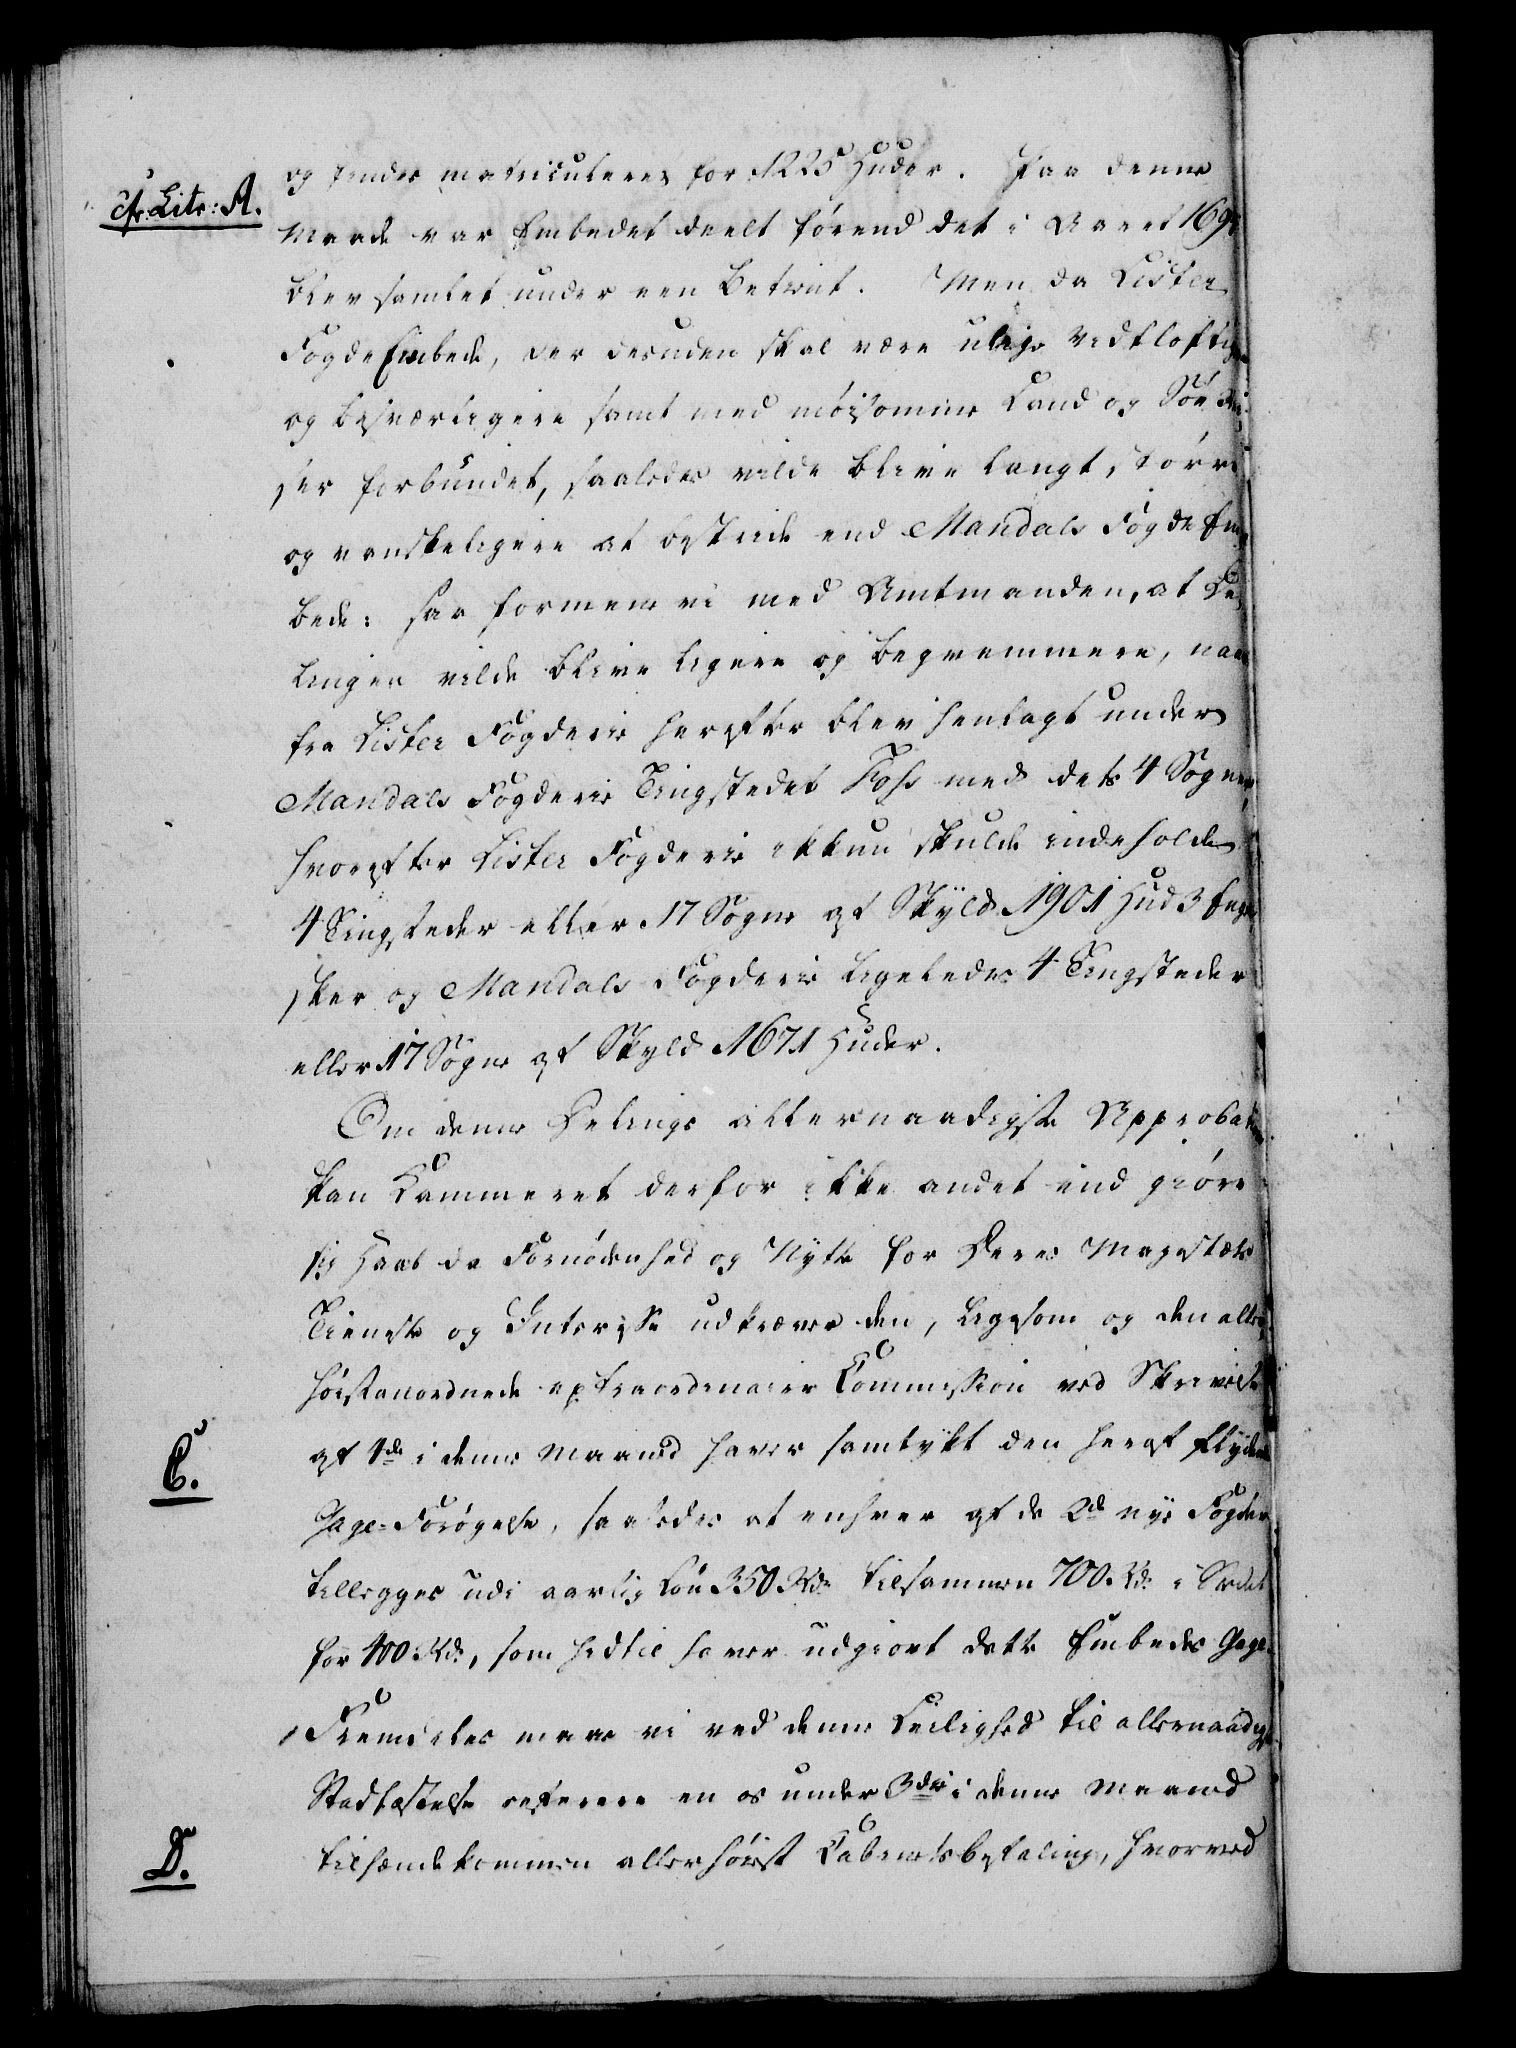 cfr. Litr: A.
og findes matriculeret for 1225 Huder. Paa denne
Maade var Embedet deelt förend det i Aaret 169
blev samlet under een Betient. Men da Lister
FogdeEmbede, der desuden skal være ulige vidtløftige
og besværligere samt med möisomme Land og Söe Rei
ser forbundet, saaledes vilde blive langt större
og vanskeligere at bestride end Mandals FogdeEm
bede: saa formene vi med Amtmanden, at De
lingen vilde blive ligere og beqvemmere, naar
fra Lister Fogderie herefter blev henlagt under
Mandals Fogderie Tingstedet Foss med dets 4 Sogner,
hvorefter Lister Fogderie ikkun skulde indeholde
4 Tingsteder eller 17 Sogne af Skyld 1901 Hud 3 Enge
sker og Mandals Fogderie ligeledes 4 Tingsteder
eller 17 Sogne af Skyld 1671 Huder.
Om denne Delings allernaadigste Approbation
kan Kammeret derfor ikke andet end giöre
sig Haab da Fornödenhed og Nytte for Deres Majestæts
Tieneste og Interesse udkræver den, ligesom og den aller
höistanordnede extraordinaire Commission ved Skrivelse
C.
af 1de i denne Maaned haver samtykt den heraf flydende
Gage-Forögelse, saaledes at enhver af de 2de nye Fogder
tillegges udi aarlig Lön 350 Rdr tilsammen 700 Rdr i Stedet
for 400 Rdr, som hidtil haver udgiort dette Embedes Gage.
Fremdeles maae vi ved denne Leilighed til allernaadigst
Stadfæstelse referere en os under 3die i denne Maaned
D.
tilhændekommen allerhöist Cabinetsbefaling, hvorved